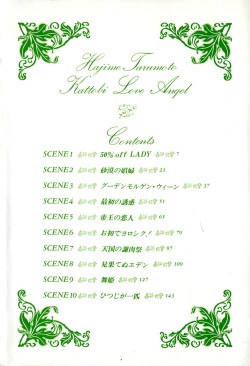 Hajime Turumoto
Kattobi Love Angel
Contents
SCENE1 50%off LADY 7
SCENE2 砂漠の娼婦 23
SCENE3 グーデンモルゲン・ウィーン 37
SCENE4 最初の誘惑 51
SCENE5 帝王の恋人 65
SCENE6 お初でヨロシク! 79
SCENE7 天国の謝肉祭 97
SCENE8 見果てぬエデン 109
SCENE9 舞姫 127
SCENE10 ひつじが一匹 143